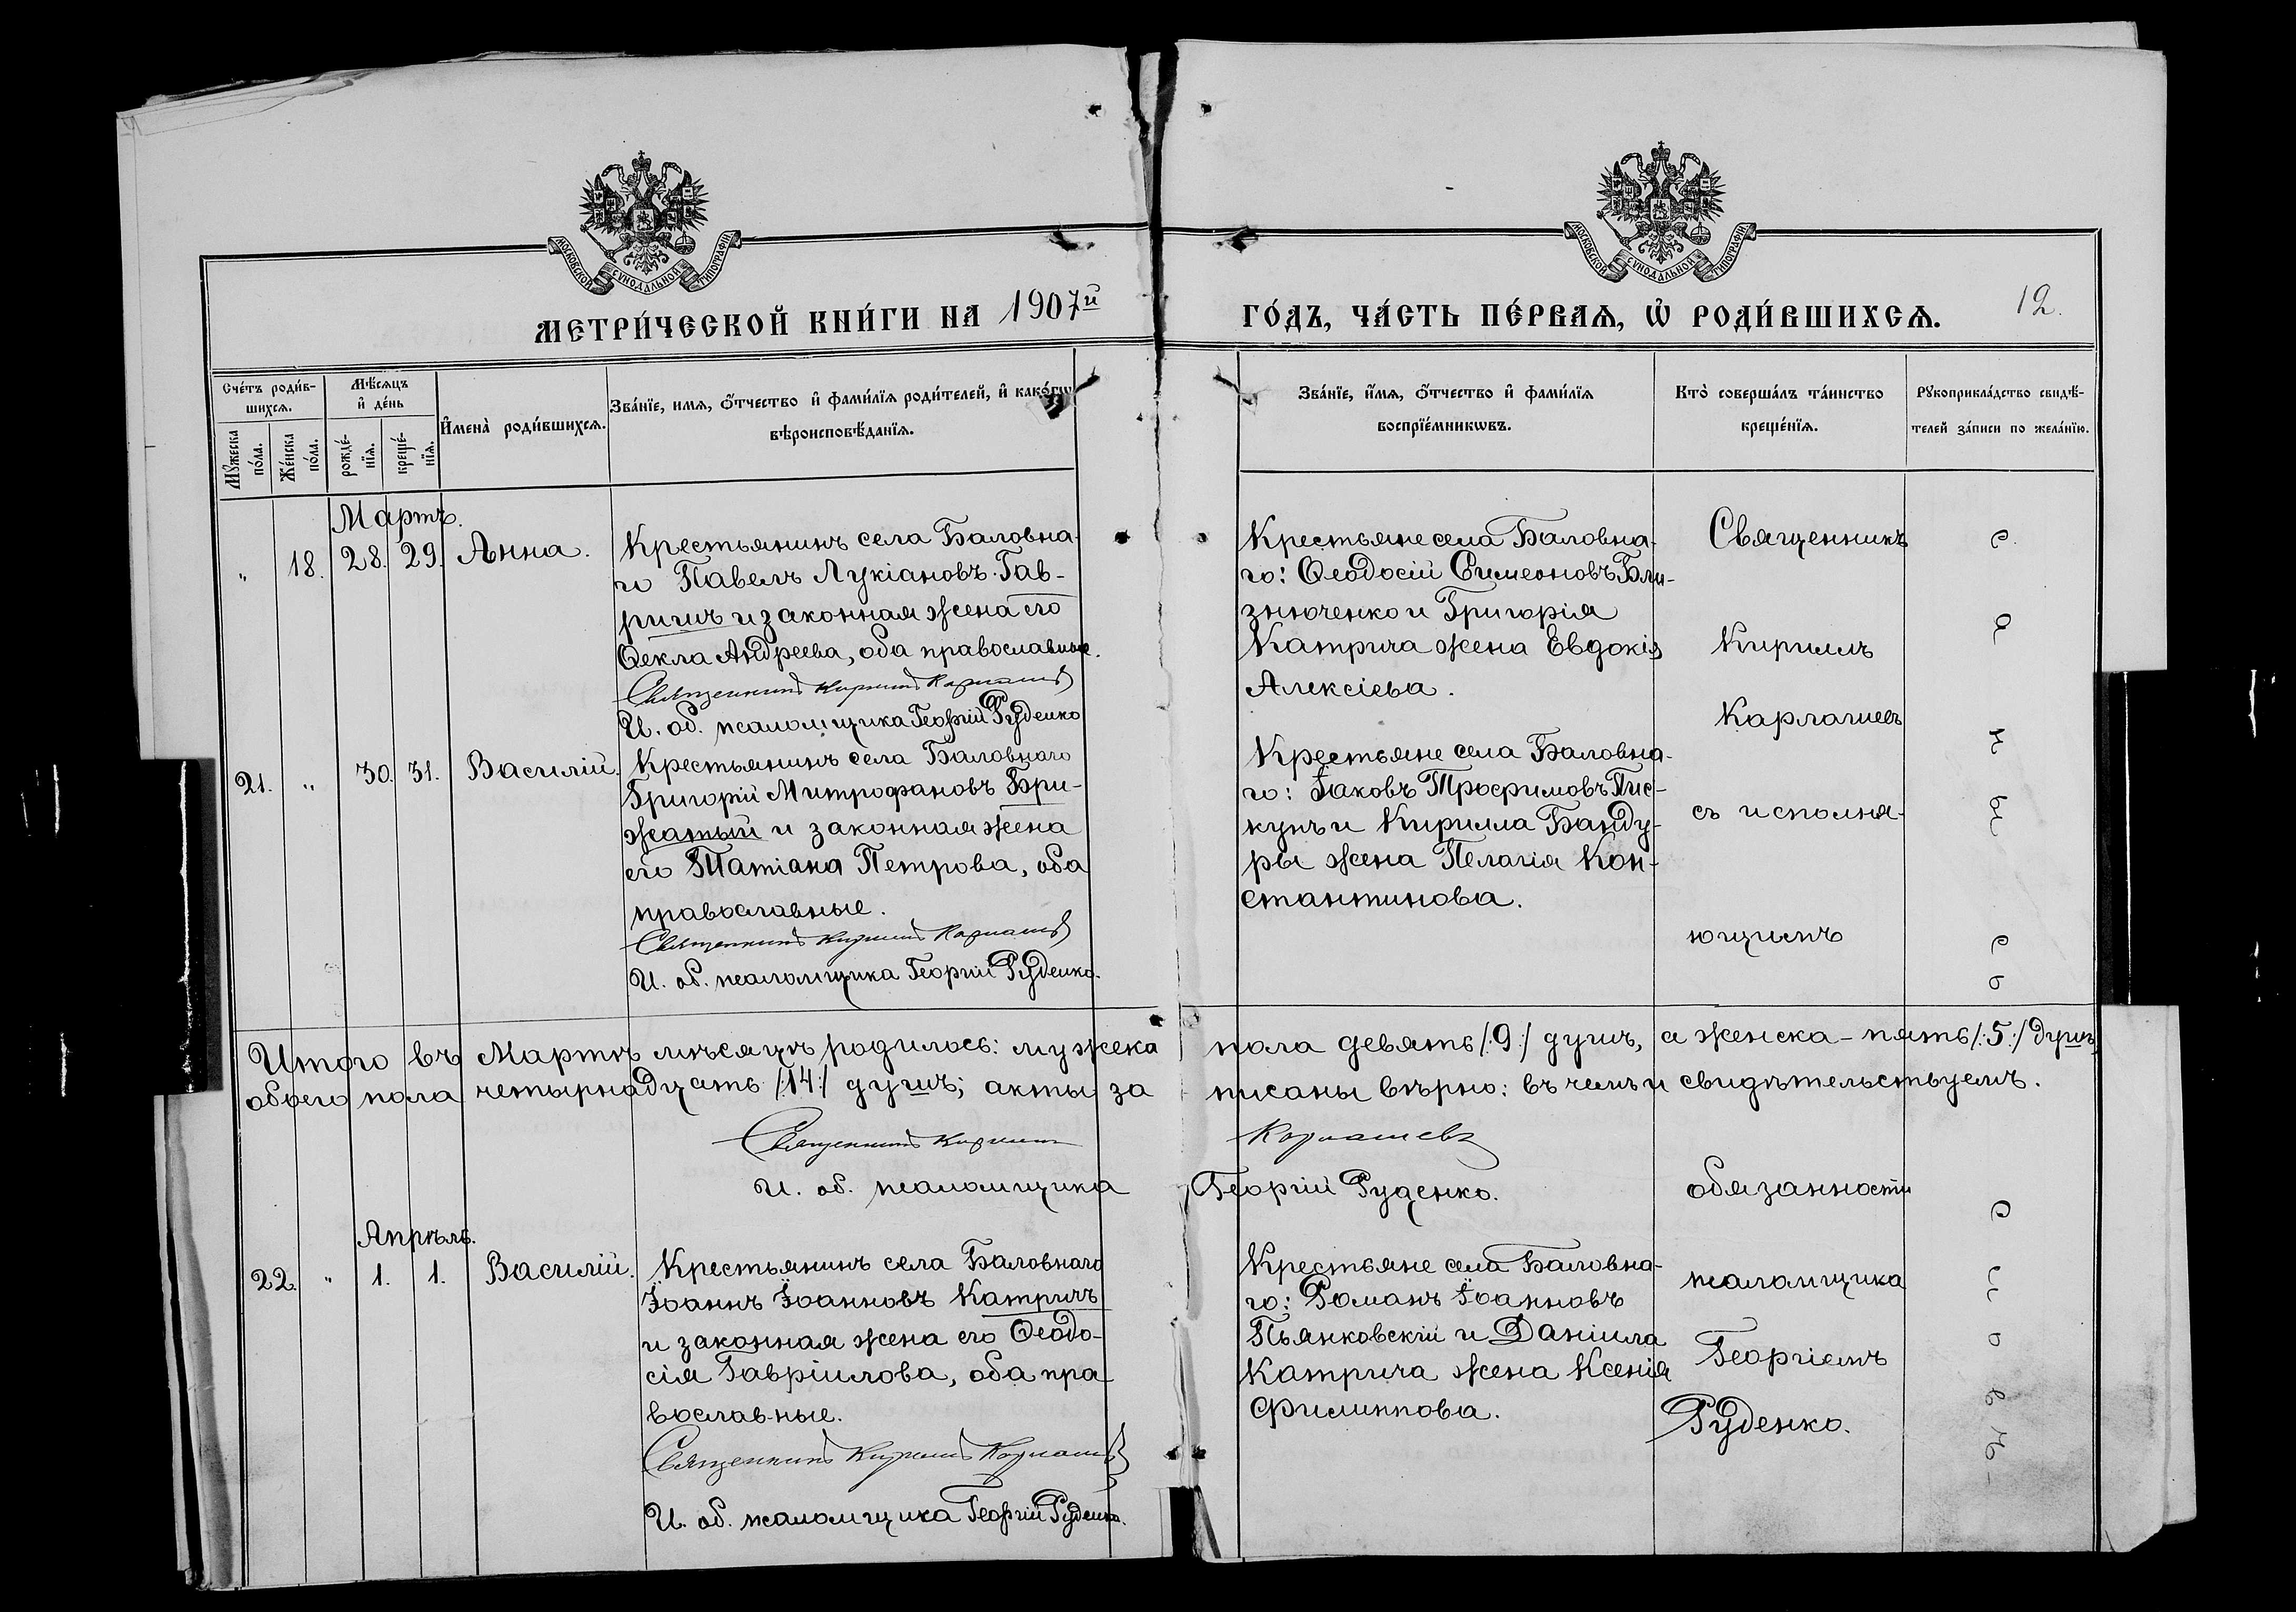 МОСКОВСКОЙ СУНОДАЛЬНОЙ ТИПОГРАФІИ
МОСКОВСКОЙ СУНОДАЛЬНОЙ ТИПОГРАФІИ
МЕТРИ́ЧЕСКОЙ КНИ́ГИ НА 1907й
ГО́ДЪ, ЧА́СТЬ ПЕ́РВАѦ, Ѡ҆ РОДИ́ВШИХСѦ.
12.
Сче́тъ роди́в-
шихсѧ.
Мꙋ́жеска по́ла.
Же́нска по́ла.
Мѣ́сѧцъ
и҆ де́нь
рожде́-
нїѧ.
креще́-
нїѧ.
И҆мена̀ роди́вшихсѧ.
Зва́нїе, имѧ, о҆́тчество и҆ фами́лїѧ роди́телей, и҆ како́гѡ
вѣроисповѣ́данїѧ.
Зва́нїе, и҆́мѧ, о҆́тчество и҆ фами́лїѧ
воспрїе́мникѡвъ.
Кто̀ соверша́лъ та́инство
креще́нїѧ.
Рꙋкоприкла́дство свидѣ́-
телей за́писи по жела́нїю.
Мартъ.
" 18. 28. 29. Анна.
Крестьянинъ села Баловна-
го Павелъ Лукіановъ Гав-
ришъ и законная жена его
Ѳекла Андреева, оба православные.
Священникъ Кириллъ Карпашевъ
И. об. псаломщика Георгій Руденко
Крестьяне села Баловна-
го: Ѳеодосій Симеоновъ Бли-
знюченко и Григорія
Катрича жена Евдокія
Алексіева.
21. " 30. 31. Василій.
Крестьянинъ села Баловнаго
Григорій Митрофановъ Бри-
жатый и законная жена
его Татіана Петрова, оба
православные.
Священникъ Кириллъ Карпашевъ
И. об. псаломщика Георгій Руденко.
Крестьяне села Баловна-
го: Іаковъ Трофимовъ Пис-
кунъ и Кирилла Банду-
ры жена Пелагія Кон-
стантинова.
Священникъ
Кириллъ
съ исполня-
ющимъ
Итого въ Мартѣ мѣсяцѣ родилось: мужеска пола девять /:9:/ душъ, а женска - пять /:5:/ душъ,
обоего пола четырнадцать /:14:/ душъ; акты за писаны вѣрно: въ чемъ и свидѣтельствуемъ.
Священникъ Кириллъ Карпашевъ
И. об. псаломщика Георгій Руденко.
Апрѣль.
22. " 1. 1. Василій.
Крестьянинъ села Баловнаго
Іоаннъ Іоанновъ Катричъ
и законная жена его Ѳеодо-
сія Гавріилова, оба пра-
вославные.
Священникъ Кириллъ Карпашевъ
И. об. псаломщика Георгій Руденко.
Крестьяне села Баловна-
го: Романъ Іоанновъ
Пьянковскій и Даніила
Катрича жена Ксенія
Филиппова.
обязанности
псаломщика
Георгіемъ
Руденко.